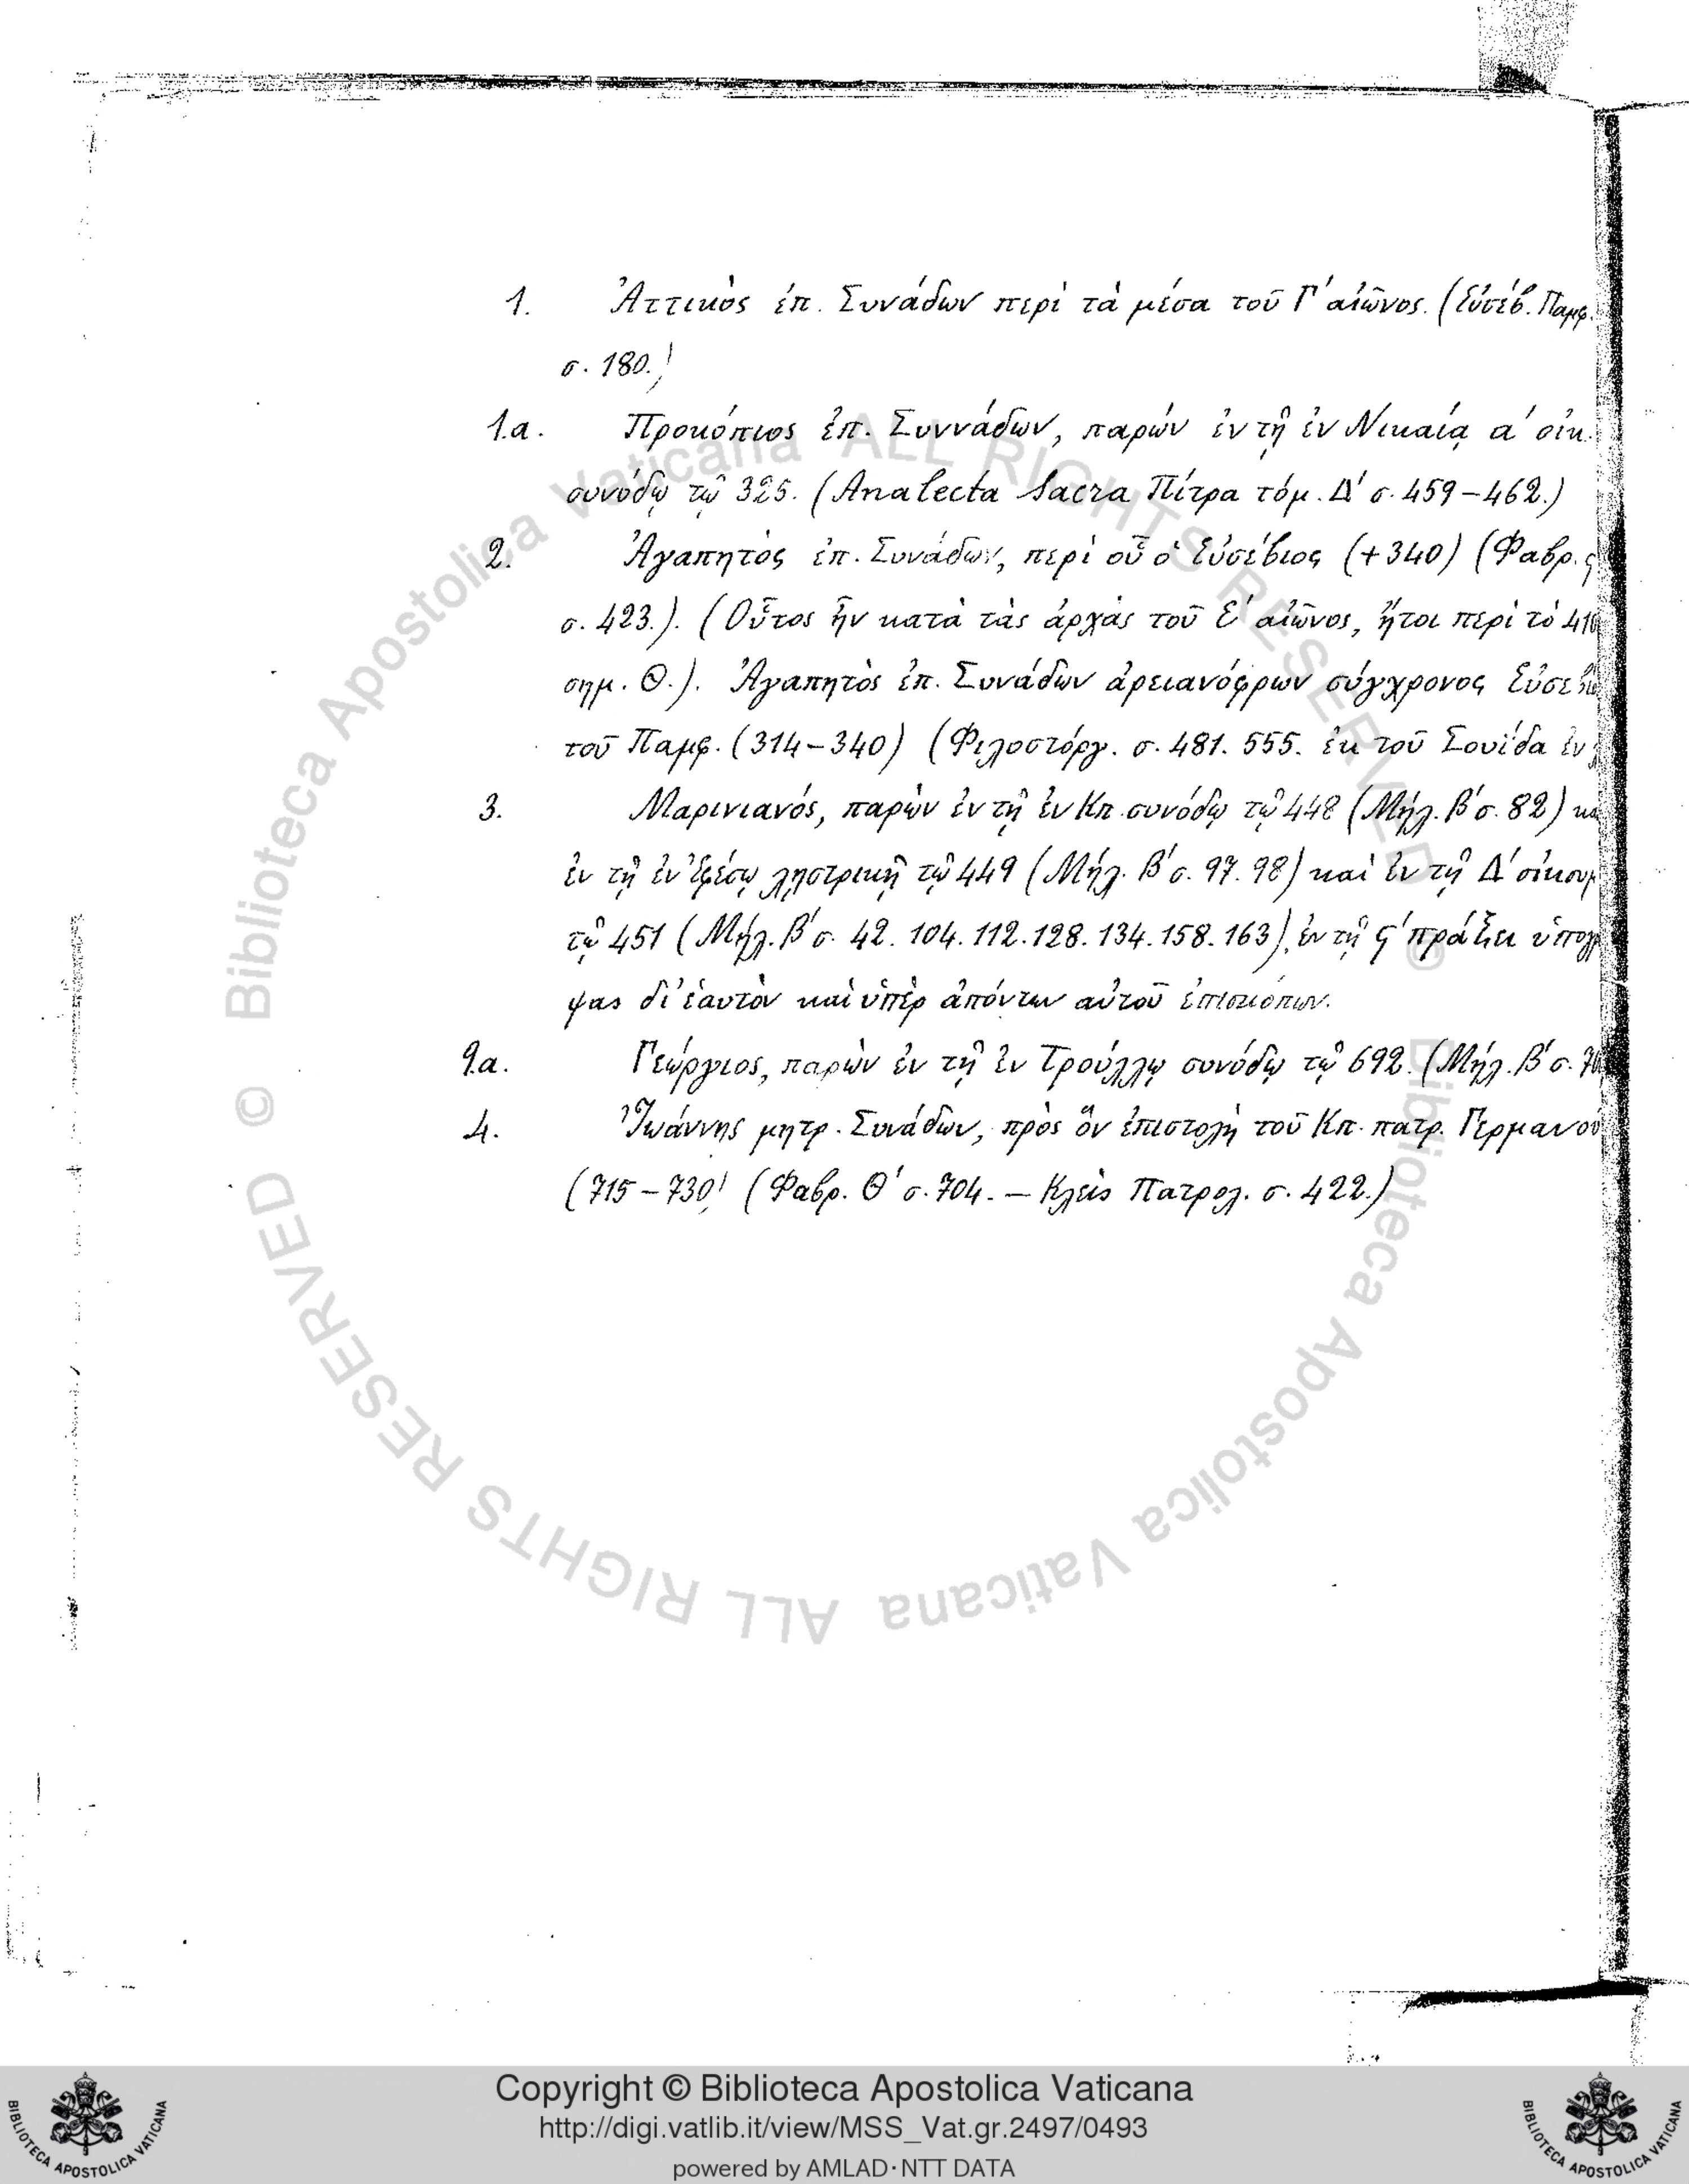 1. Ἀττικὸς ἐπ. Συνάδων περὶ τὰ μέσα τοῦ Γ΄ αἰῶνος. (Εὐσέβ. Παμφ.
σ. 180.)
1.α. Προκόπιος ἐπ. Συννάδων, παρὼν ἐν τῇ ἐν Νικαίᾳ α΄ οἰκ.
συνόδῳ τῷ 325. (Analecta Sacra Πίτρα τόμ. Δ΄ σ. 459–462.)
2. Ἀγαπητὸς ἐπ. Συνάδων, περὶ οὗ ὁ Εὐσέβιος (+340) (Φαβρ. ς
σ. 423.). (Οὗτος ἦν κατὰ τὰς ἀρχὰς τοῦ Ε΄ αἰῶνος, ἤτοι περὶ τὸ 410
σημ. Θ.). Ἀγαπητὸς ἐπ. Συνάδων ἀρειανόφρων σύγχρονος Εὐσεβίου
τοῦ Παμφ. (314–340) (Φιλοστόργ. σ. 481. 555. ἐκ τοῦ Σουΐδα ἐν
3. Μαρινιανός, παρὼν ἐν τῇ ἐν Κπ. συνόδῳ τῷ 448 (Μήλ. Β΄ σ. 82) κα
ἐν τῇ ἐν Ἐφέσῳ λῃστρικῇ τῷ 449 (Μήλ. Β΄ σ. 97. 98) καὶ ἐν τῇ Δ΄ οἰκουμ
τῷ 451 (Μήλ. Β΄ σ. 42. 104. 112. 128. 134. 158. 163), ἐν τῇ ς΄ πράξει ὑπογρ
ψας δι' ἑαυτὸν καὶ ὑπὲρ ἀπόντων αὐτοῦ ἐπισκόπων.
9.α. Γεώργιος, παρὼν ἐν τῇ ἐν Τρούλλῳ συνόδῳ τῷ 692. (Μήλ. Β΄ σ.
4. Ἰωάννης μητρ. Συνάδων, πρὸς ὃν ἐπιστολὴ τοῦ Κπ. πατρ. Γερμανοῦ
(715–730) (Φαβρ. Θ΄ σ. 704. — Κλεὶς Πατρολ. σ. 422.)
© Biblioteca Apostolica Vaticana ALL RIGHTS RESERVED
© Biblioteca Apostolica Vaticana ALL RIGHTS RESERVED
Copyright © Biblioteca Apostolica Vaticana
http://digi.vatlib.it/view/MSS_Vat.gr.2497/0493
powered by AMLAD·NTT DATA
BIBLIOTECA APOSTOLICA VATICANA
BIBLIOTECA APOSTOLICA VATICANA